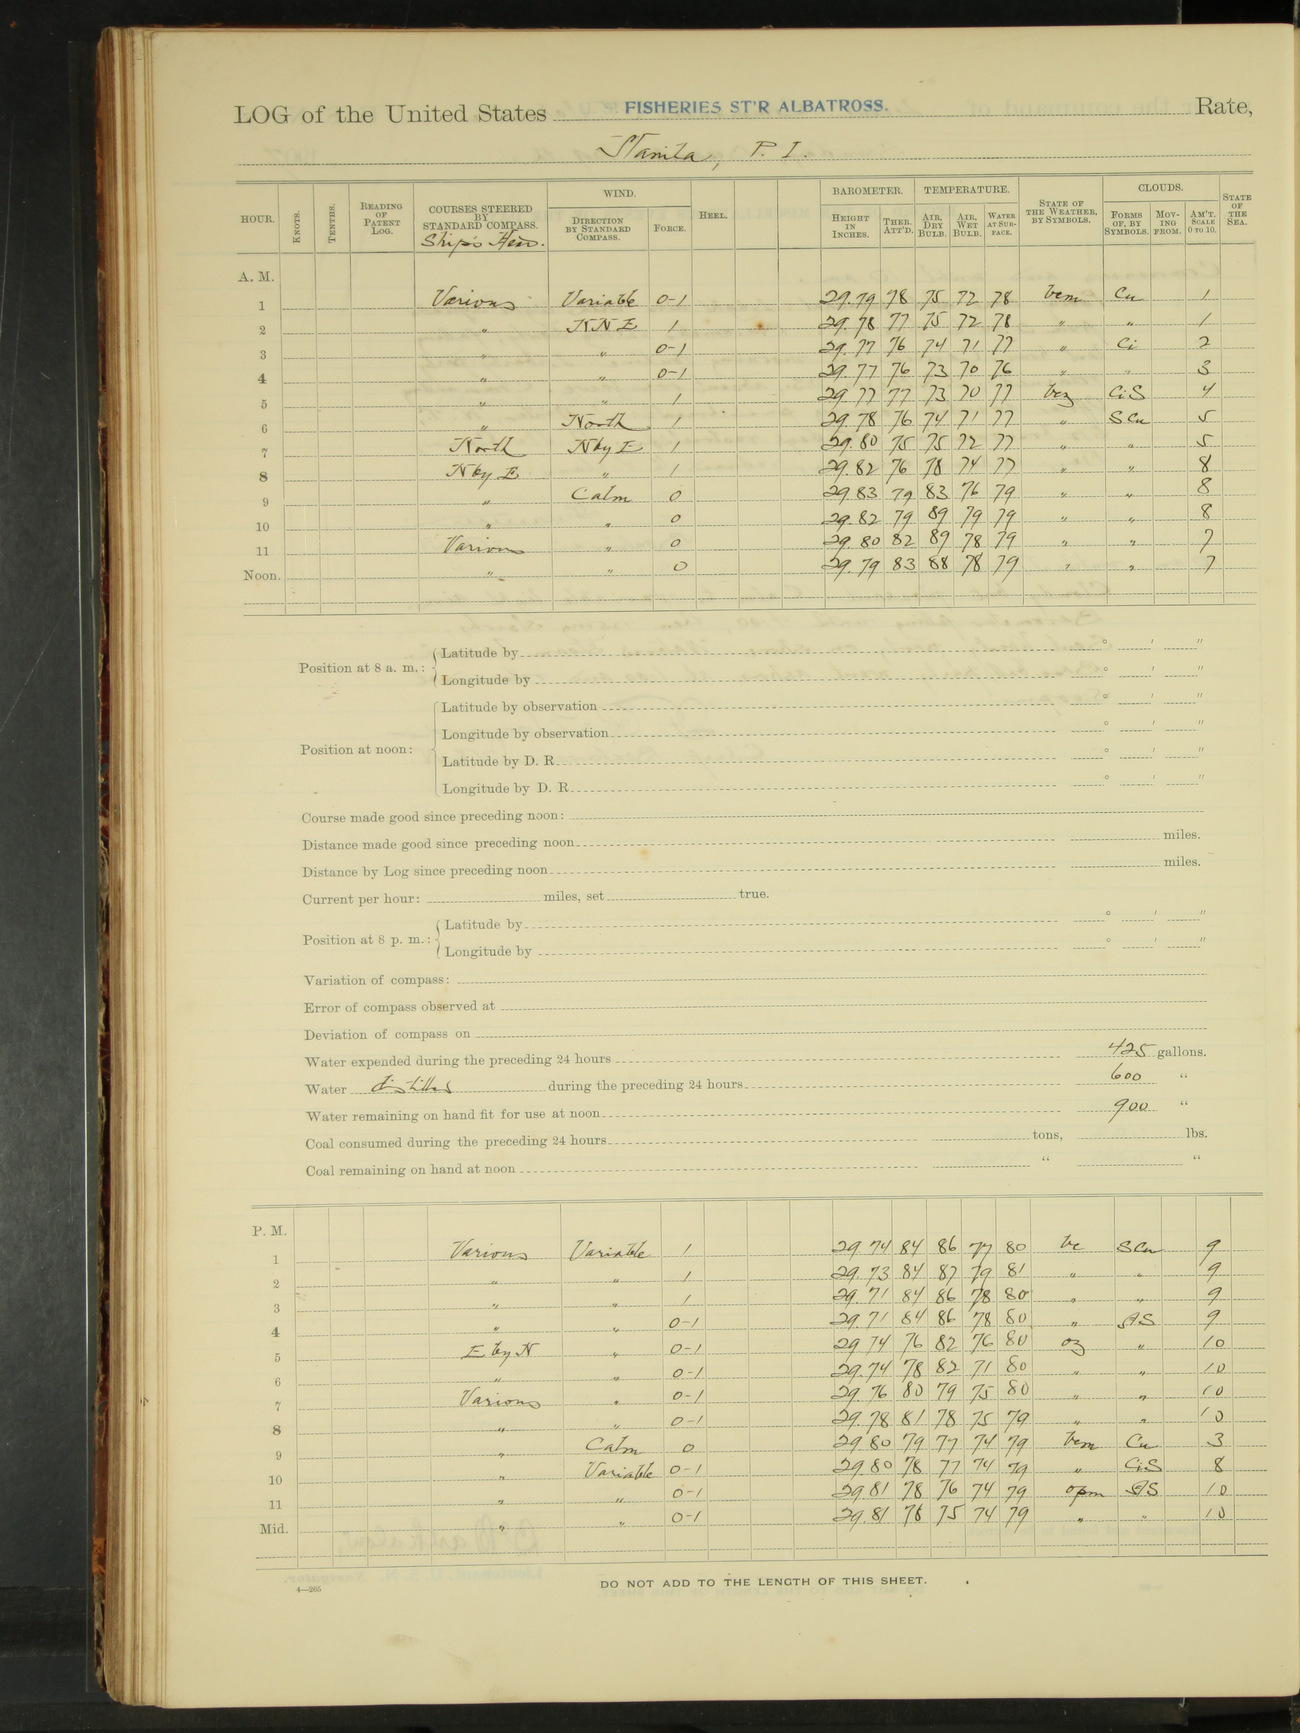 LOG of the United States FISHERIES ST'R ALBATROSS. Rate,
Manila, P. I.
HOUR. KNOTS. TENTHS. READING OF PATENT LOG. COURSES STEERED BY STANDARD COMPASS. Ship's Head. WIND. DIRECTION BY STANDARD COMPASS. FORCE. HEEL. BAROMETER. HEIGHT IN INCHES. THER. ATT'D. TEMPERATURE. AIR, DRY BULB. AIR, WET BULB. WATER AT SURFACE. STATE OF THE WEATHER, BY SYMBOLS. CLOUDS. FORMS OF, BY SYMBOLS. MOVING FROM. AM'T. SCALE 0 TO 10. STATE OF THE SEA.
A. M.
1 Various Variable 0-1 29.79 78 75 72 78 bcm Cu 1
2 " NNE 1 29.78 77 75 72 78 " " 1
3 " " 0-1 29.77 76 74 71 77 " Ci 2
4 " " 0-1 29.77 76 73 70 76 " " 3
5 " " 1 29.77 77 73 70 77 bcz CiS 4
6 " North 1 29.78 76 74 71 77 " SCu 5
7 North N by E 1 29.80 75 75 72 77 " " 5
8 N by E " 1 29.82 76 78 74 77 " " 8
9 " Calm 0 29.83 79 83 76 79 " " 8
10 " " 0 29.82 79 89 79 79 " " 8
11 Various " 0 29.80 82 89 78 79 " " 7
Noon. " " 0 29.79 83 88 78 79 " " 7
Position at 8 a. m.: Latitude by ° ' "
Longitude by ° ' "
Position at noon: Latitude by observation ° ' "
Longitude by observation ° ' "
Latitude by D. R. ° ' "
Longitude by D. R. ° ' "
Course made good since preceding noon:
Distance made good since preceding noon miles.
Distance by Log since preceding noon miles.
Current per hour: miles, set true.
Position at 8 p. m.: Latitude by ° ' "
Longitude by ° ' "
Variation of compass:
Error of compass observed at
Deviation of compass on
Water expended during the preceding 24 hours 425 gallons.
Water distilled during the preceding 24 hours 600 "
Water remaining on hand fit for use at noon 900 "
Coal consumed during the preceding 24 hours tons, lbs.
Coal remaining on hand at noon " "
P. M.
1 Various Variable 1 29.74 84 86 77 80 bc SCu 9
2 " " 1 29.73 84 87 79 81 " " 9
3 " " 1 29.71 84 86 78 80 " " 9
4 " " 0-1 29.71 84 86 78 80 " AS 9
5 E by N " 0-1 29.74 76 82 76 80 oz " 10
6 " " 0-1 29.74 78 82 71 80 " " 10
7 Various " 0-1 29.76 80 79 75 80 " " 10
8 " " 0-1 29.78 81 78 75 79 " " 10
9 " Calm 0 29.80 79 77 74 79 bcm Cu 3
10 " Variable 0-1 29.80 78 77 74 79 " CiS 8
11 " " 0-1 29.81 78 76 74 79 opm AS 10
Mid. " " 0-1 29.81 78 75 74 79 " " 10
4—265
DO NOT ADD TO THE LENGTH OF THIS SHEET.